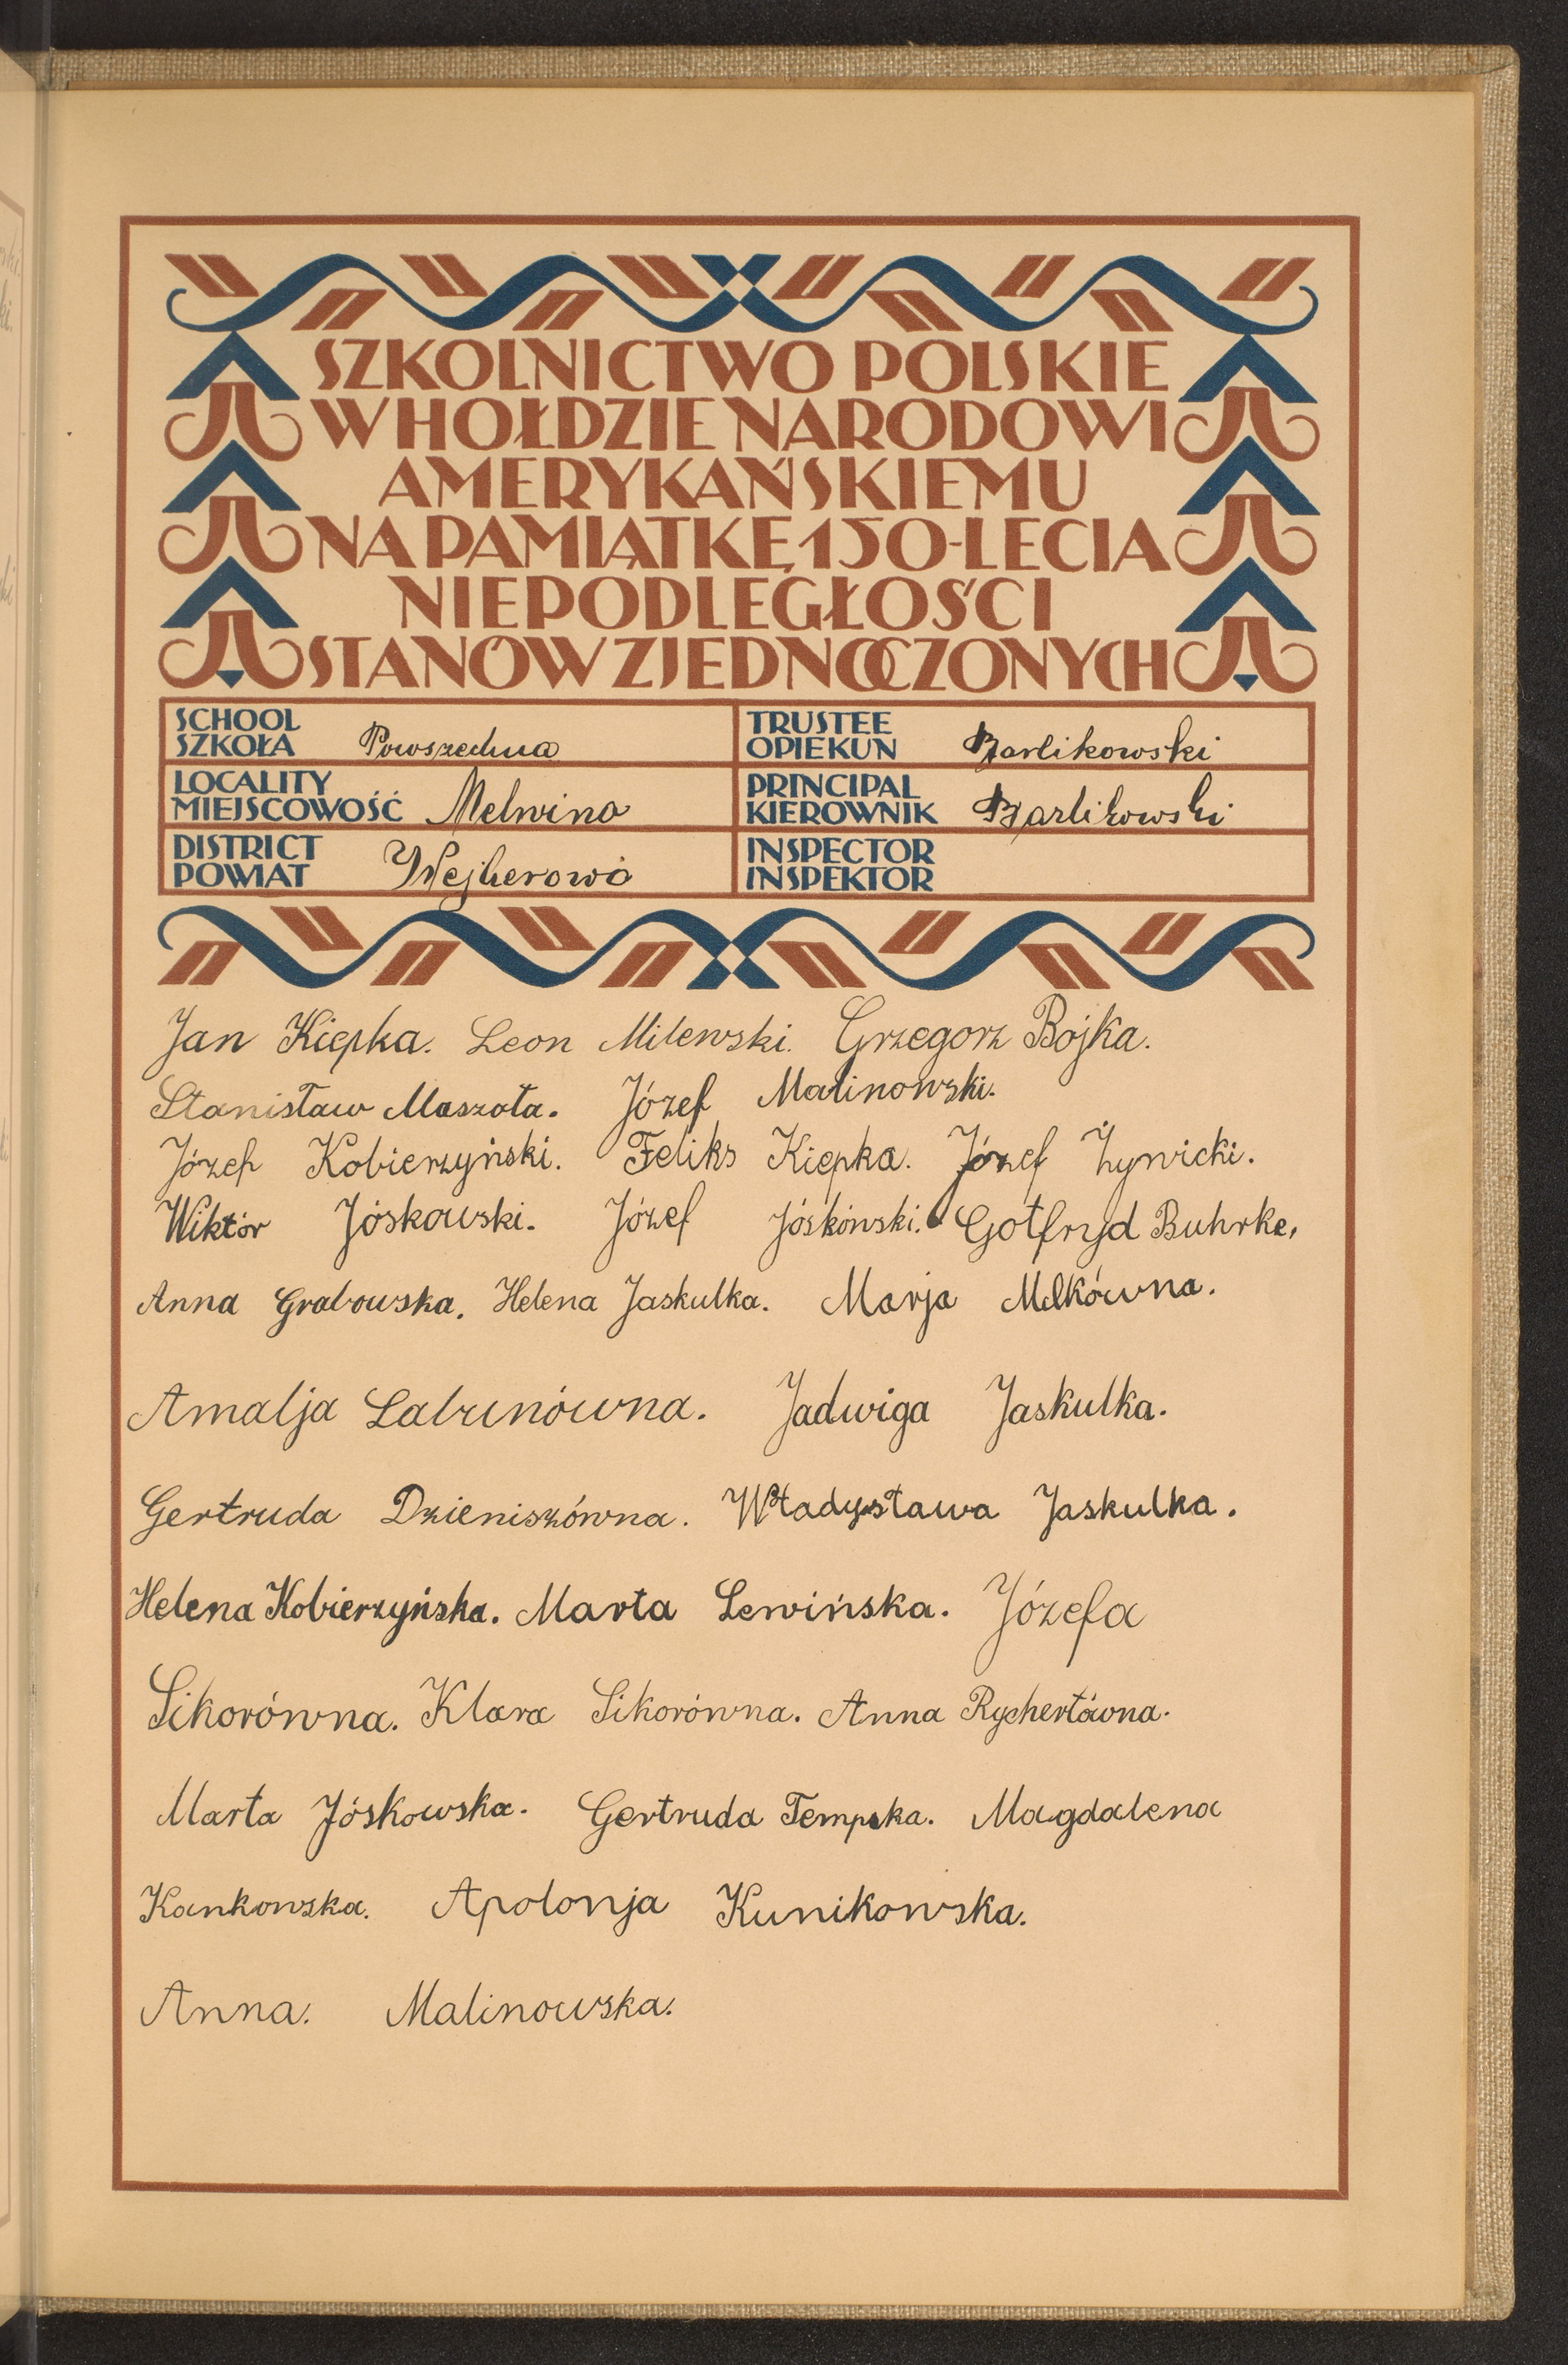 SZKOLNICTWO POLSKIE
W HOŁDZIE NARODOWI
AMERYKAŃSKIEMU
NA PAMIĄTKĘ 150-LECIA
NIEPODLEGŁOŚCI
STANÓW ZJEDNOCZONYCH
SCHOOL
SZKOŁA Powszechna
TRUSTEE
OPIEKUN Barlikowski
LOCALITY
MIEJSCOWOŚĆ Melwino
PRINCIPAL
KIEROWNIK Barlikowski
DISTRICT
POWIAT Wejherowo
INSPECTOR
INSPEKTOR
Jan Kiepka. Leon Milewski. Grzegorz Bojka.
Stanisław Maszota. Józef Malinowski.
Józef Kobierzyński. Feliks Kiepka. Józef Żywicki.
Wiktór Jóskowski. Józef Jóskówski. Gotfryd Buhrke,
Anna Grabowska. Helena Jaskulka. Marja Melkówna.
Amalja Labunówna. Jadwiga Jaskulka.
Gertruda Dzieniszówna. Władysława Jaskulka.
Helena Kobierzyńska. Marta Lewińska. Józefa
Sikorówna. Klara Sikorówna. Anna Rychertówna.
Marta Jóskowska. Gertruda Tempska. Magdalena
Kankowska. Apolonja Kunikowska.
Anna. Malinowska.